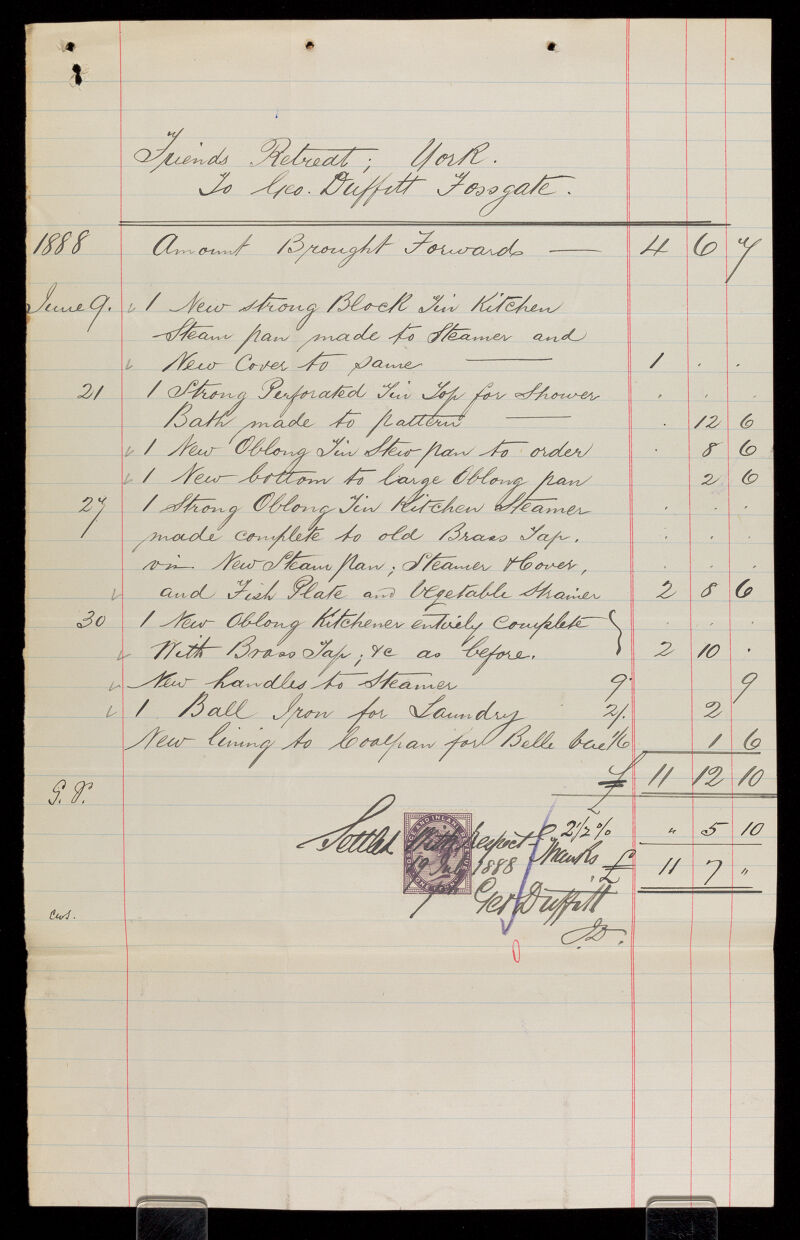 Friends Retreat; York.
To Geo. Duffitt Fossgate.
1888 Amount Brought Forwards — 4 6 7
June 9. 1 New strong Block Tin Kitchen
Steam pan made to Steamer and
New Cover to same — 1 . .
21 1 Strong Perforated Tin Top for Shower . . .
Bath made to pattern — . 12 6
1 New Oblong Tin Stew pan to order . 8 6
1 New bottom to large Oblong pan 2 6
27 1 Strong Oblong Tin Kitchen Steamer . . .
made complete to old Brass Tap. . . .
viz. New Steam pan; Steamer & Cover, . . .
and Fish Plate and Vegetable Strainer 2 8 6
30 1 New Oblong Kitchener entirely complete . . .
With Brass Tap; &c as before. 2 10 .
New handles to Steamer 9 9
1 Ball Iron for Laundry 2/. 2
New lining to Coalpan for Belle Vue 1/6 1 6
£ 11 12 10
G. P.
2 1/2 % " 5 10
Settled With respect &
Thanks £ 11 7 "
POSTAGE AND INLAND REVENUE
19 July 1888
Geo Duffitt
cws.
J.D.
0